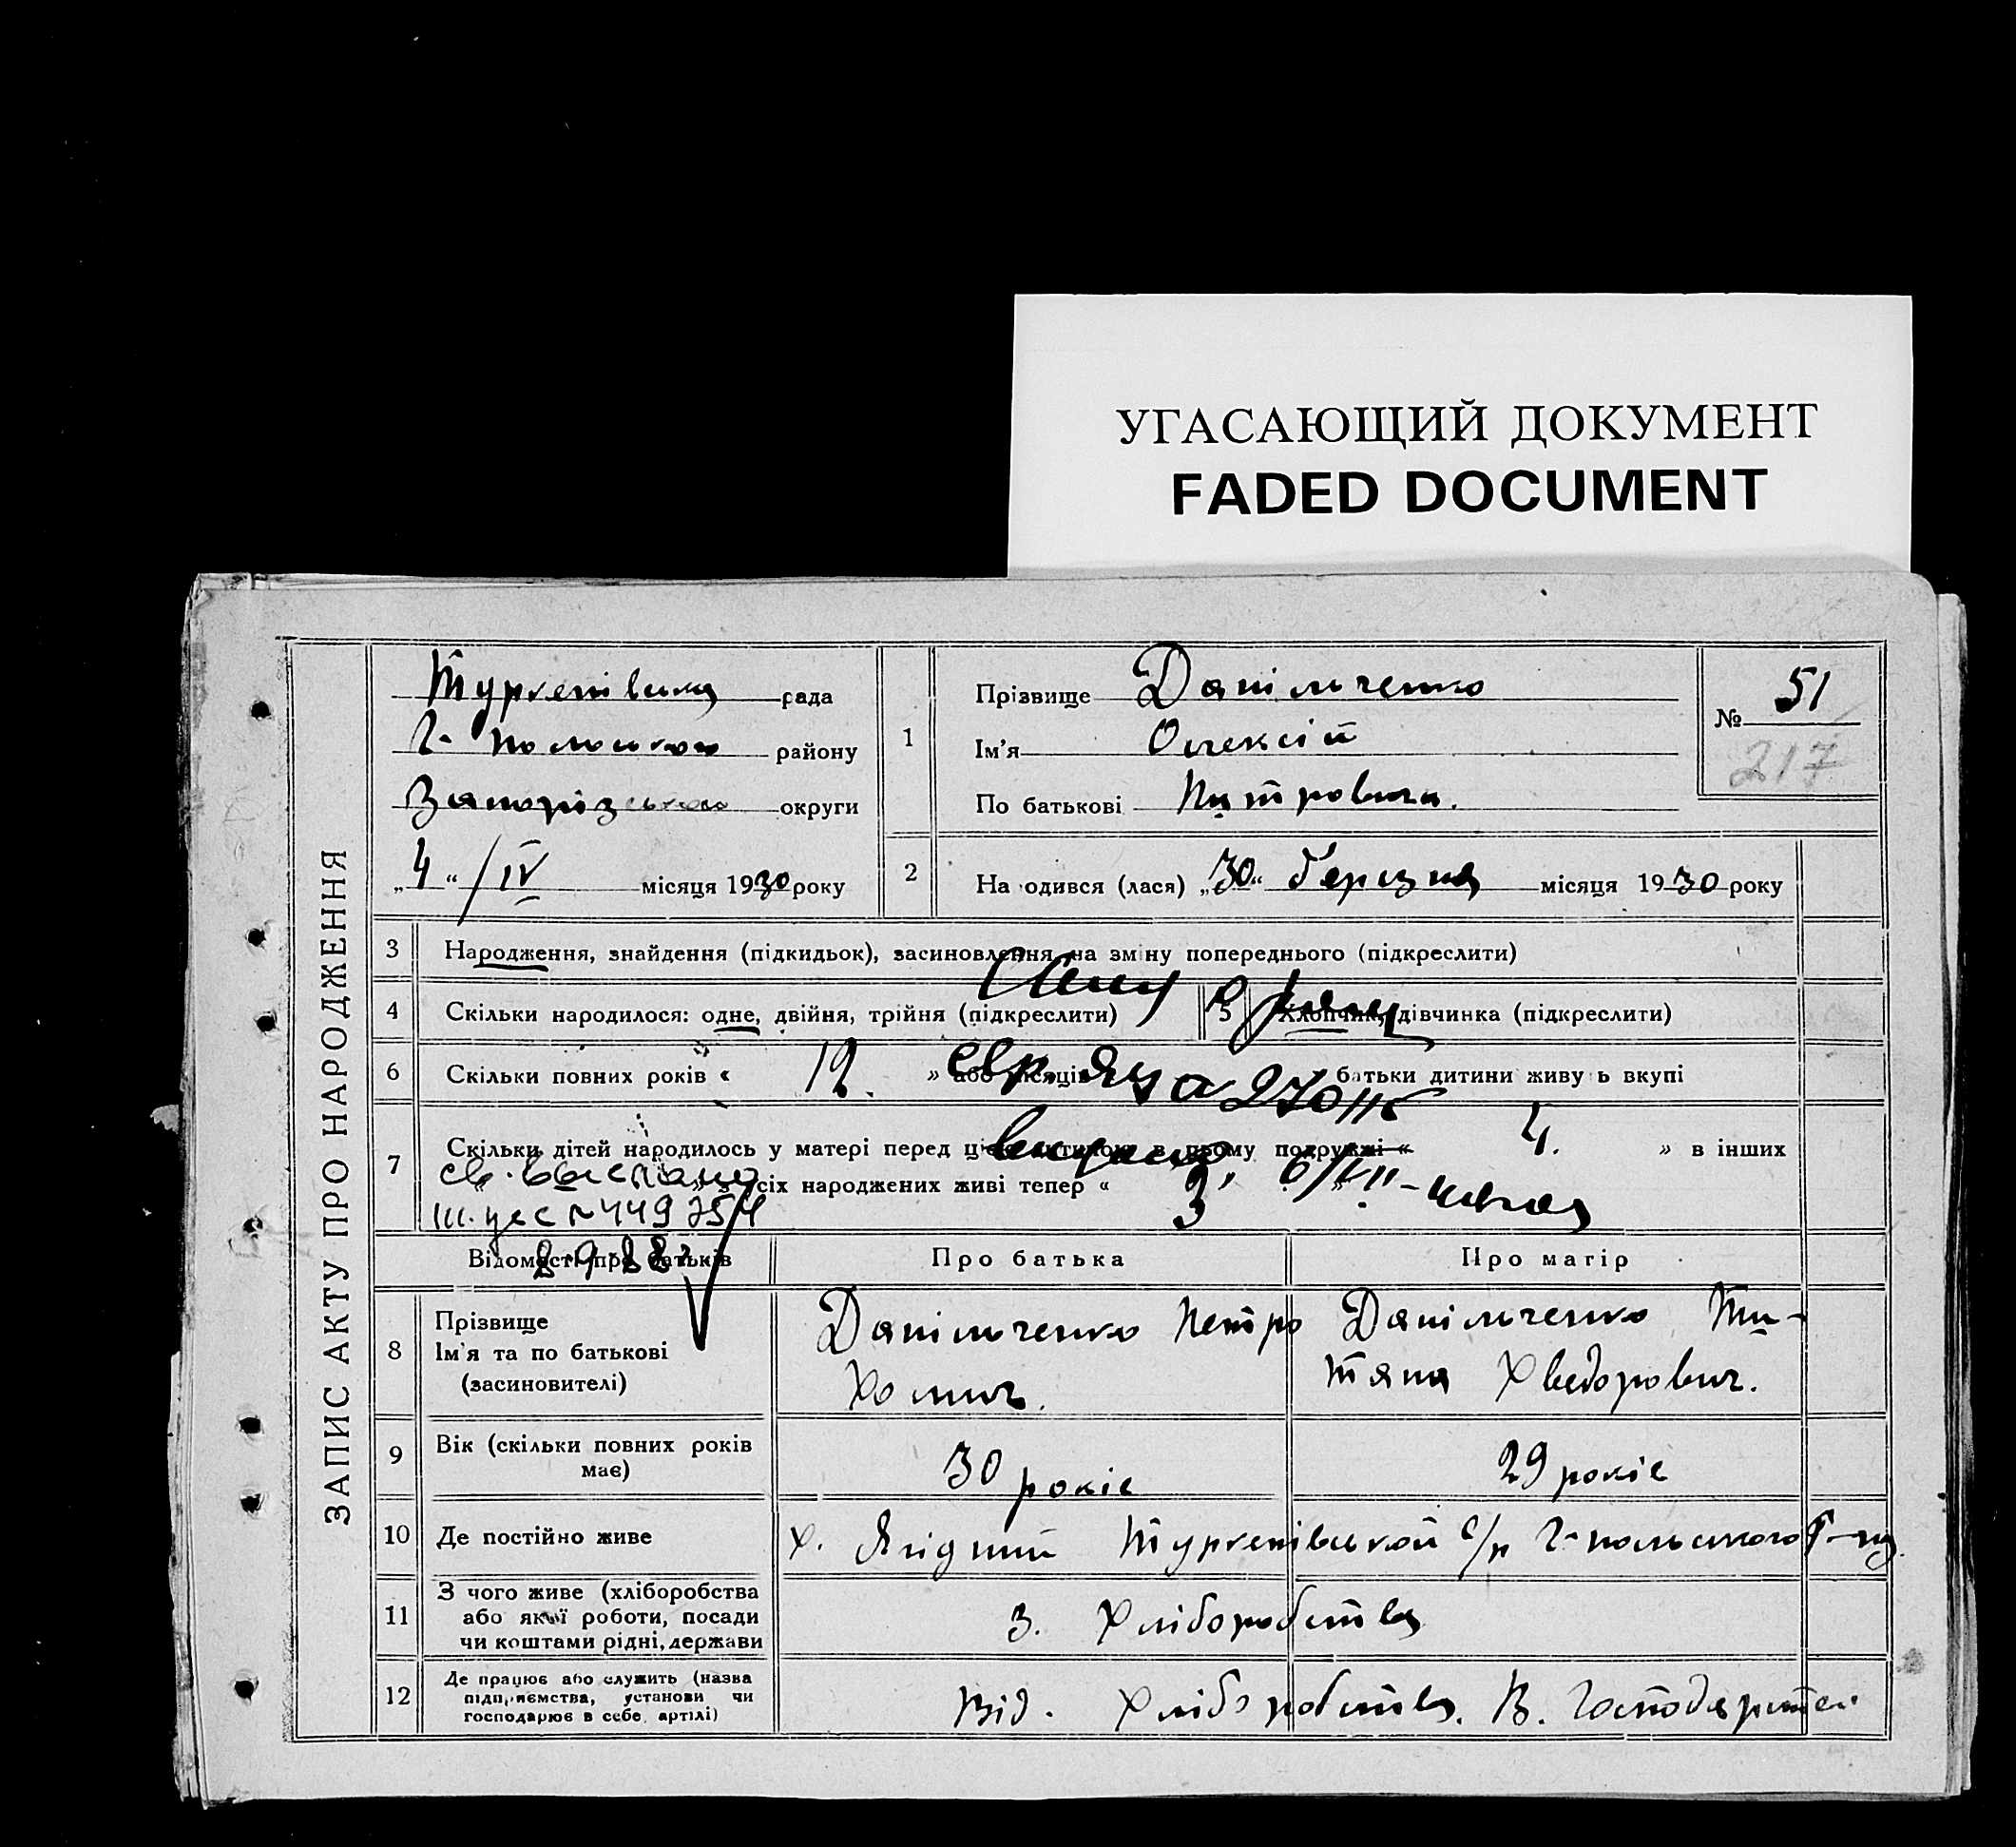 УГАСАЮЩИЙ ДОКУМЕНТ
FADED DOCUMENT
ЗАПИС АКТУ ПРО НАРОДЖЕННЯ
рада
району
округи
„4“ /IV місяця 1930 року
1
Прізвище Данільченко
Ім'я Олексій
По батькові
№ 51
217
2
На одився (лася) „30“ березня місяця 1930 року
3 Народження, знайдення (підкидьок), засиновлення на зміну попереднього (підкреслити)
4 Скільки народилося: одне, двійня, трійня (підкреслити)
5 Хлопчик, дівчинка (підкреслити)
6 Скільки повних років « 12. » або місяців батьки дитини живу ь вкупі
7 Скільки дітей народилось у матері перед цією дитиною в цьому подружжі « 4. » в інших
усіх народжених живі тепер « 3
6/VII
Відомості про батьків
Про батька
Про матір
8 Прізвище
Ім'я та по батькові
(засиновителі)
Данільченко Петро
Хомич.
Данільченко Ти-
тяна Хведорович.
9 Вік (скільки повних років
має)
30 років
29 років
10 Де постійно живе
х. Тургенівської с/р Г-польського р-ну.
11 З чого живе (хліборобства
або якої роботи, посади
чи коштами рідні, держави
З. Хліборобства
12 Де працює або служить (назва
підприємства, установи чи
господарює в себе, артілі)
Від. Хліборобства. В.